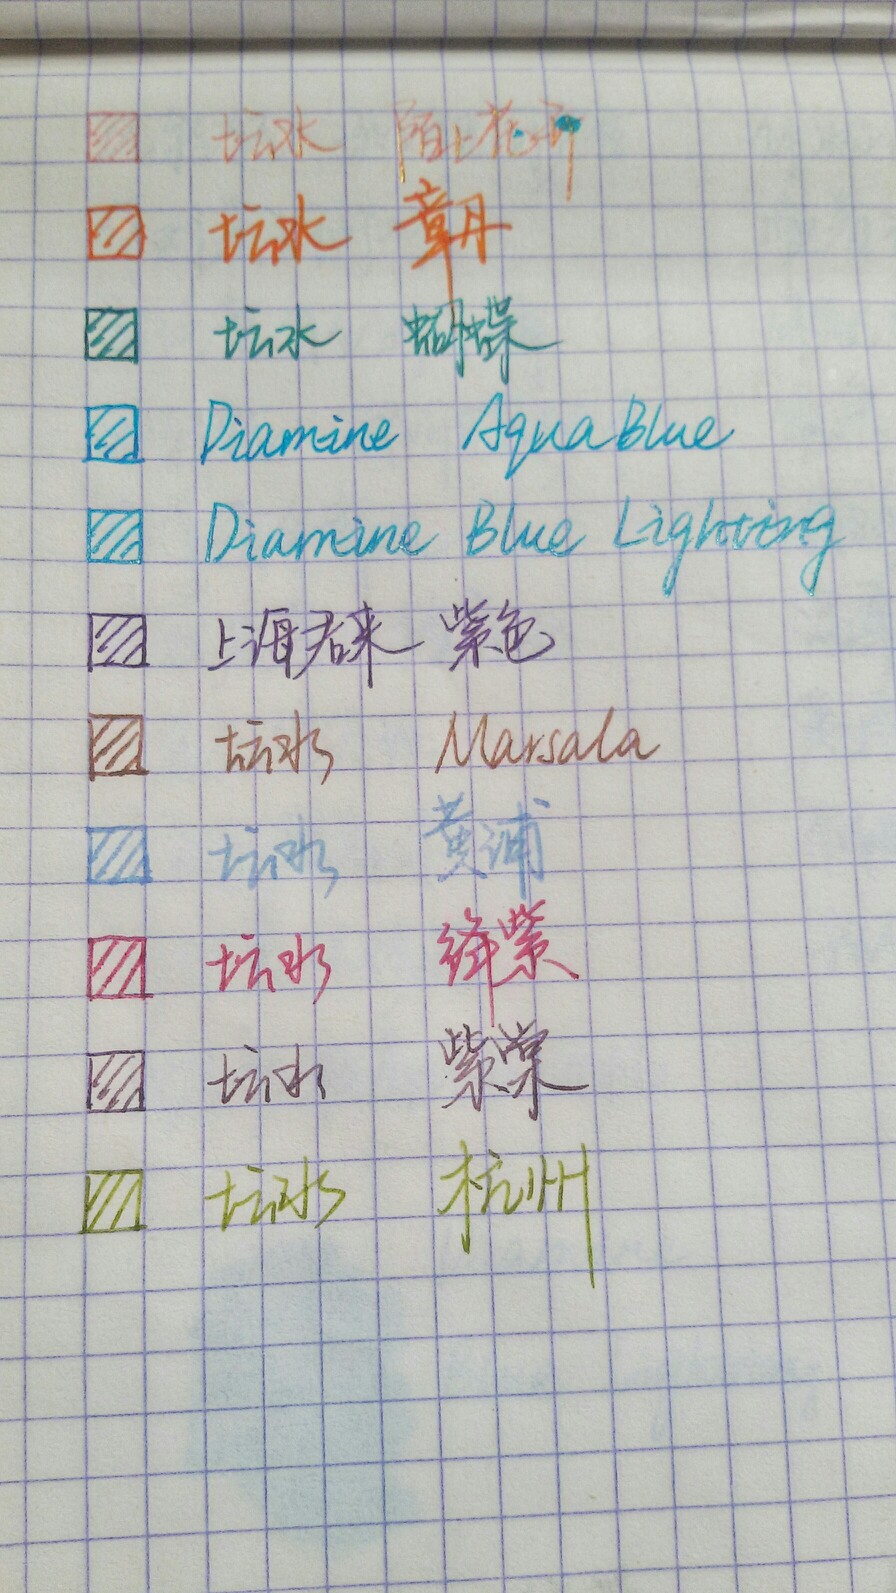 坛水 陌上花开
坛水 章丹
坛水 蝴蝶
Diamine Aqua Blue
Diamine Blue Lighting
上海君来 紫色
坛水 Marsala
坛水 黄浦
坛水 绛紫
坛水 紫棠
坛水 杭州